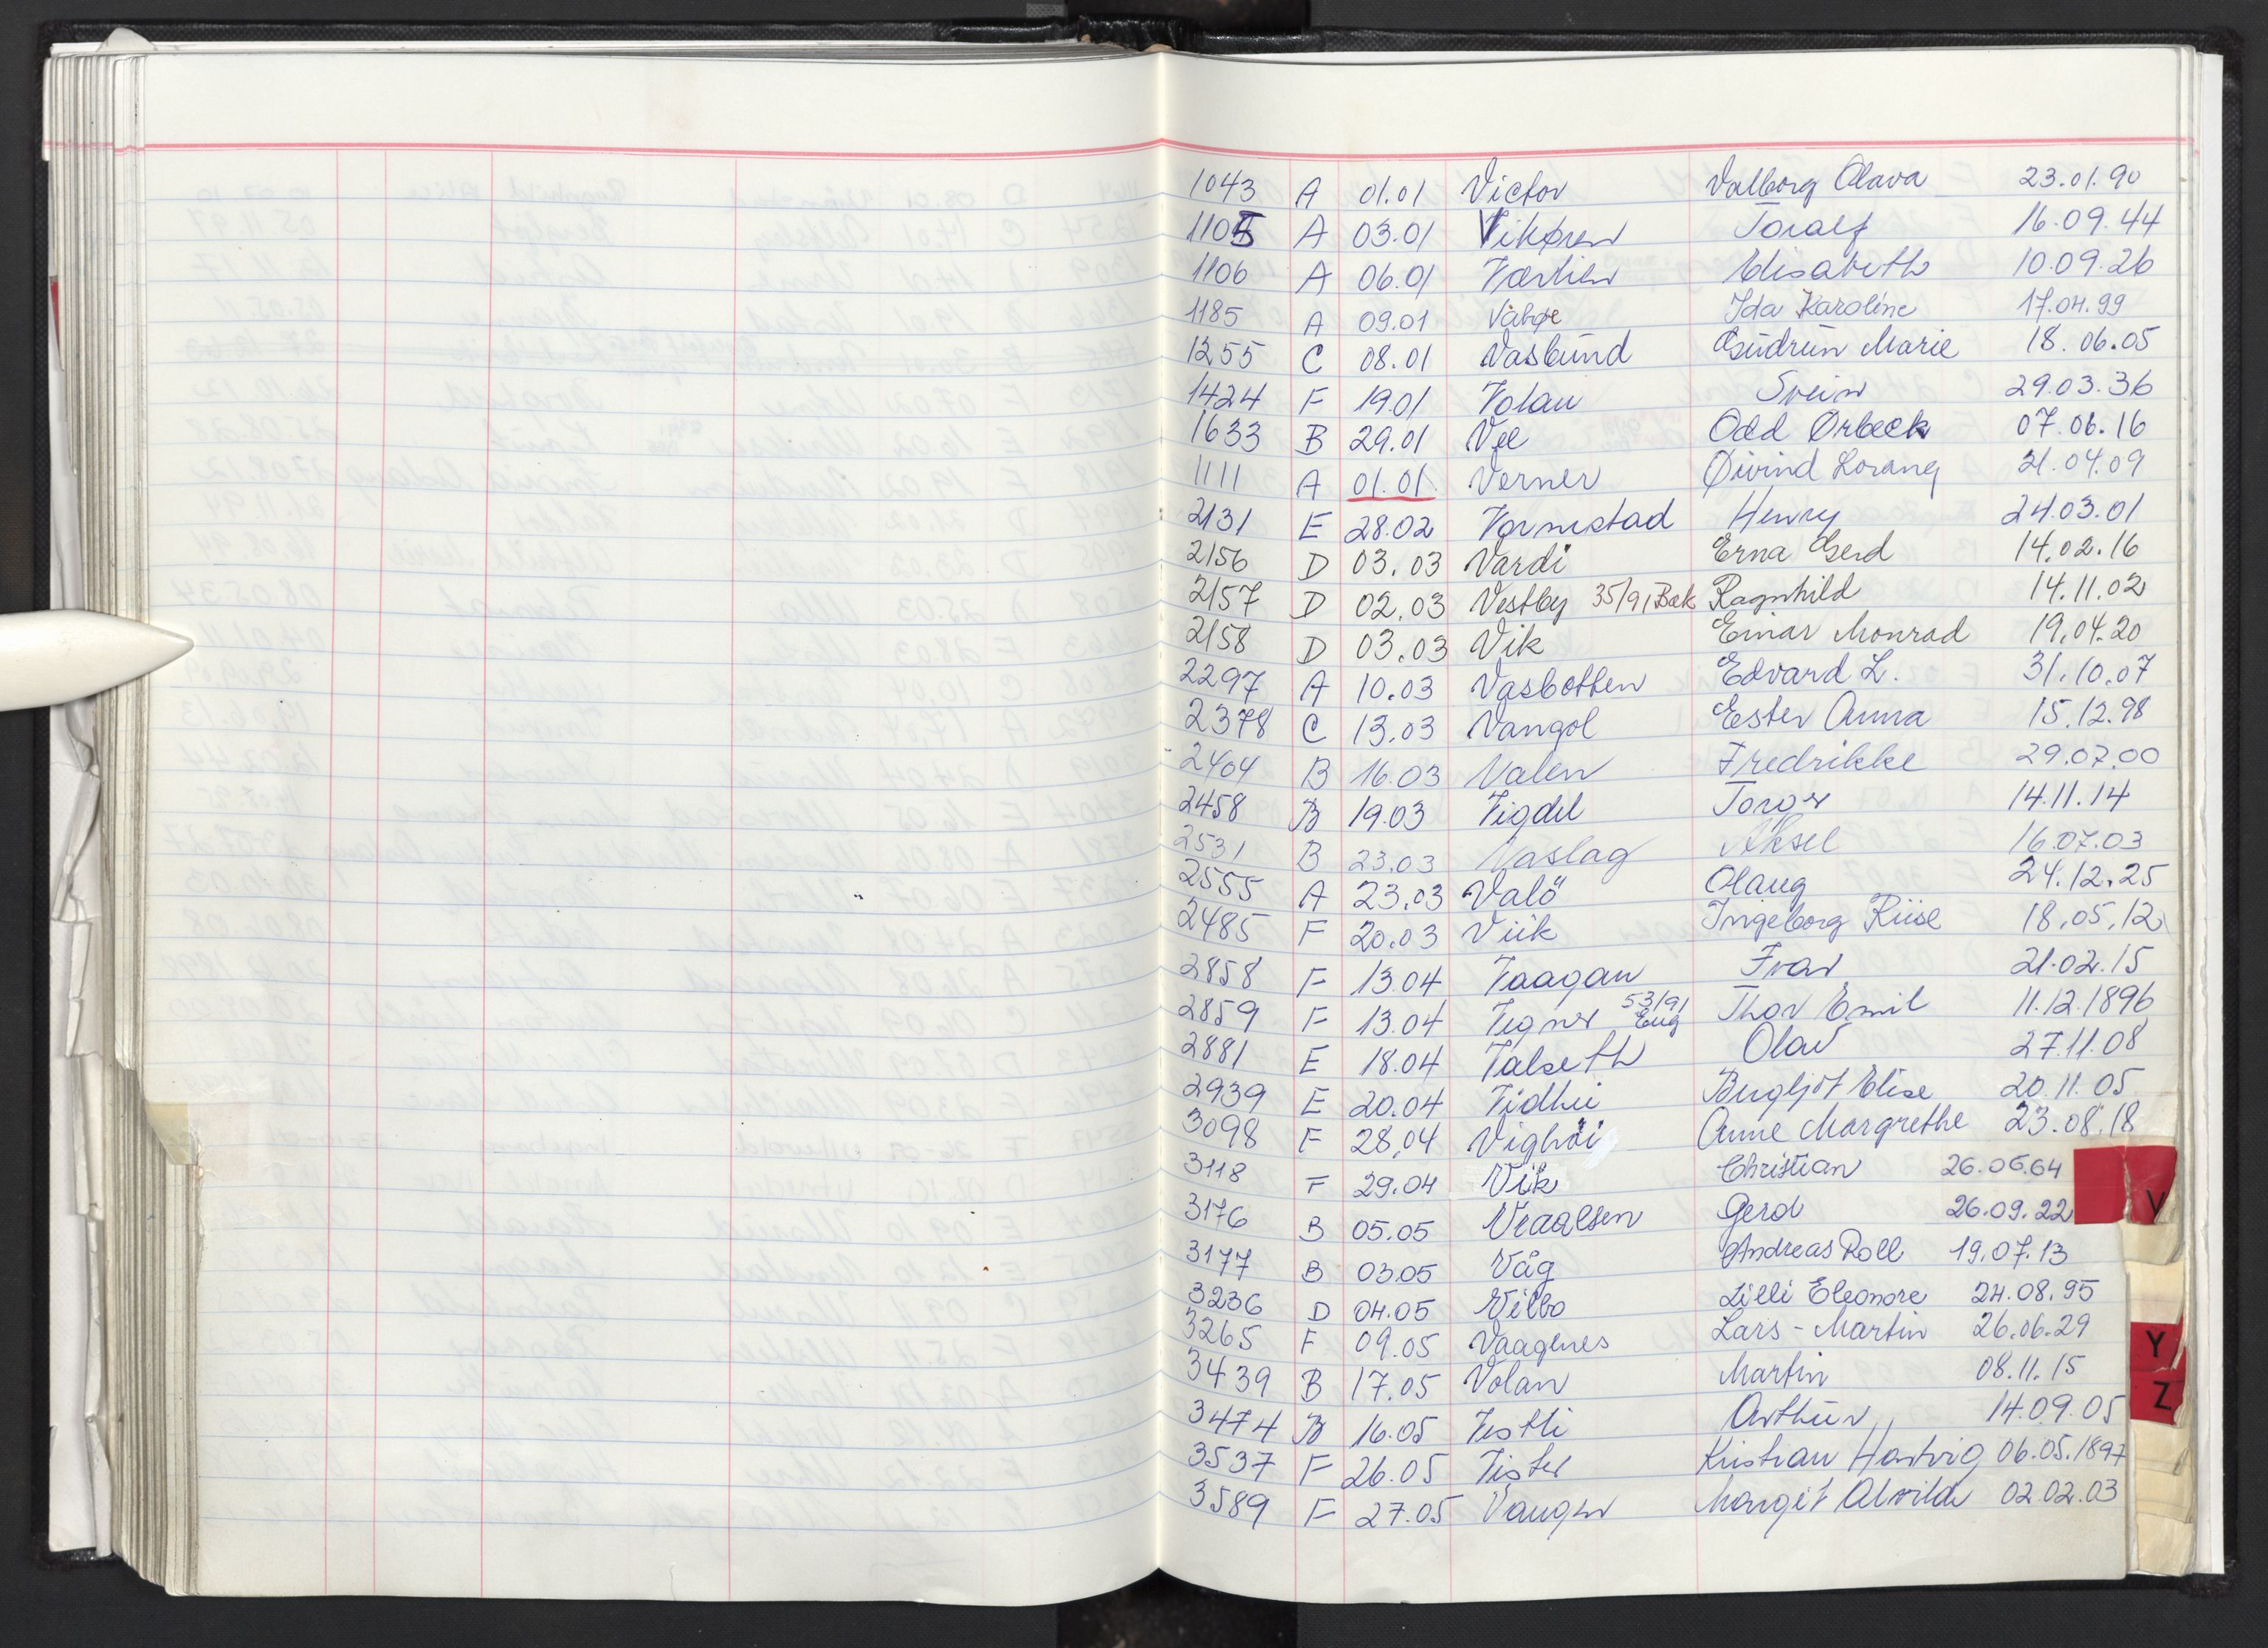 1043 A 01.01 Victor Valborg Olava 23.01.90
1105 A 03.01 Vikøren Toralf 16.09.44
1106 A 06.01 Værlien Elisabeth 10.09.26
1185 A 09.01 Våbøe Ida Karoline 17.04.99
1255 C 08.01 Vasbund Gudrun Marie 18.06.05
1424 F 19.01 Volan Svein 29.03.36
1633 B 29.01 Vee Odd Ørbeck 07.06.16
1111 A 01.01 Verner Øivind Lorang 21.04.09
2131 E 28.02 Vormestad Henry 24.03.01
2156 D 03.03 Vardi Erna Gerd 14.02.16
2157 D 02.03 Vestby 35/91 Bæk Ragnhild 14.11.02
2158 D 03.03 Vik Einar Monrad 19.04.20
2297 A 10.03 Vasbotten Edvard L. 31.10.07
2378 C 13.03 Vangol Ester Anna 15.12.98
2404 B 16.03 Valen Fredrikke 29.07.00
2458 B 19.03 Vigdel Torger 14.11.14
2531 B 23.03 Vaslag Aksel 16.07.03
2555 A 23.03 Valö Olaug 24.12.25
2485 F 20.03 Viik Ingeborg Riise 18.05.12
2858 F 13.04 Vaagan Ivar 21.02.15
2859 F 13.04 Vegner 53/91 Eug Thor Emil 11.12.1896
2881 E 18.04 Valseth Olav 27.11.08
2939 E 20.04 Vidhei Bergljot Elise 20.11.05
3098 F 28.04 Vighöi Anne Margrethe 23.08.18
3118 F 29.04 Vik Christian 26.06.64
3176 B 05.05 Vraalsen Gerd 26.09.22
V
3177 B 03.05 Våg Andreas Roll 19.07.13
3236 D 04.05 Vilbo Lilli Eleonore 24.08.95
3265 F 09.05 Vaagenes Lars-Martin 26.06.29
Y
3439 B 17.05 Volan Martin 08.11.15
Z
3474 B 16.05 Vestli Arthur 14.09.05
3537 F 26.05 Vister Kristian Hartvig 06.05.1897
3589 F 27.05 Vangen Margit Alvilde 02.02.03